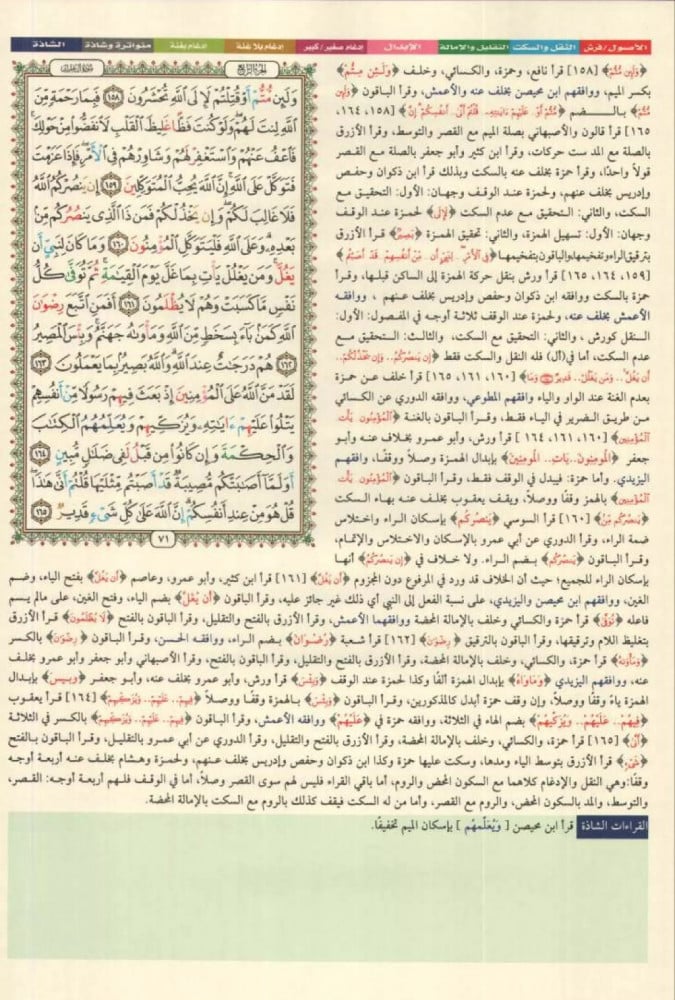 الأصول/فرش النقل والسكت التقليل والإمالة الإبدال إدغام صغير/كبير إدغام بلا غنة إدغام بغنة متواترة وشاذة الشاذة
سورة آل عمران الجزء الرابع
وَلَئِن مُّتُّمْ أَوْ قُتِلْتُمْ لَإِلَى ٱللَّهِ تُحْشَرُونَ ١٥٨ فَبِمَا رَحْمَةٍ مِّنَ
ٱللَّهِ لِنتَ لَهُمْ وَلَوْ كُنتَ فَظًّا غَلِيظَ ٱلْقَلْبِ لَٱنفَضُّوا۟ مِنْ حَوْلِكَ
فَٱعْفُ عَنْهُمْ وَٱسْتَغْفِرْ لَهُمْ وَشَاوِرْهُمْ فِى ٱلْأَمْرِ فَإِذَا عَزَمْتَ
فَتَوَكَّلْ عَلَى ٱللَّهِ إِنَّ ٱللَّهَ يُحِبُّ ٱلْمُتَوَكِّلِينَ ١٥٩ إِن يَنصُرْكُمُ ٱللَّهُ
فَلَا غَالِبَ لَكُمْ وَإِن يَخْذُلْكُمْ فَمَن ذَا ٱلَّذِى يَنصُرُكُم مِّنۢ
بَعْدِهِۦ وَعَلَى ٱللَّهِ فَلْيَتَوَكَّلِ ٱلْمُؤْمِنُونَ ١٦٠ وَمَا كَانَ لِنَبِىٍّ أَن
يَغُلَّ وَمَن يَغْلُلْ يَأْتِ بِمَا غَلَّ يَوْمَ ٱلْقِيَٰمَةِ ثُمَّ تُوَفَّىٰ كُلُّ
نَفْسٍ مَّا كَسَبَتْ وَهُمْ لَا يُظْلَمُونَ ١٦١ أَفَمَنِ ٱتَّبَعَ رِضْوَٰنَ
ٱللَّهِ كَمَنۢ بَآءَ بِسَخَطٍ مِّنَ ٱللَّهِ وَمَأْوَىٰهُ جَهَنَّمُ وَبِئْسَ ٱلْمَصِيرُ
١٦٢ هُمْ دَرَجَٰتٌ عِندَ ٱللَّهِ وَٱللَّهُ بَصِيرٌۢ بِمَا يَعْمَلُونَ ١٦٣
لَقَدْ مَنَّ ٱللَّهُ عَلَى ٱلْمُؤْمِنِينَ إِذْ بَعَثَ فِيهِمْ رَسُولًا مِّنْ أَنفُسِهِمْ
يَتْلُوا۟ عَلَيْهِمْ ءَايَٰتِهِۦ وَيُزَكِّيهِمْ وَيُعَلِّمُهُمُ ٱلْكِتَٰبَ
وَٱلْحِكْمَةَ وَإِن كَانُوا۟ مِن قَبْلُ لَفِى ضَلَٰلٍ مُّبِينٍ ١٦٤
أَوَلَمَّآ أَصَٰبَتْكُم مُّصِيبَةٌ قَدْ أَصَبْتُم مِّثْلَيْهَا قُلْتُمْ أَنَّىٰ هَٰذَا
قُلْ هُوَ مِنْ عِندِ أَنفُسِكُمْ إِنَّ ٱللَّهَ عَلَىٰ كُلِّ شَىْءٍ قَدِيرٌ ١٦٥
٧١
﴿وَلَئِن مُّتُّمْ﴾ [١٥٨] قرأ نافع، وحمزة، والكسائي، وخلف ﴿وَلَئِن مِتُّمْ﴾
بكسر الميم، ووافقهم ابن محيصن بخلف عنه والأعمش، وقرأ الباقون ﴿وَلَئِن
مُّتُّمْ﴾ بالضم
١٦٥] قرأ قالون والأصبهاني بصلة الميم مع القصر والتوسط، وقرأ الأزرق
بالصلة مع المد ست حركات، وقرأ ابن كثير وأبو جعفر بالصلة مع القصر
قولاً واحدًا، وقرأ حمزة بخلف عنه بالسكت وبذلك قرأ ابن ذكوان وحفص
وإدريس بخلف عنهم، ولحمزة عند الوقف وجهان: الأول: التحقيق مع
السكت، والثاني: التحقيق مع عدم السكت ﴿لَإِلَى﴾ لحمزة عند الوقف
وجهان: الأول: تسهيل الهمزة، والثاني: تحقيق الهمزة قرأ الأزرق
بترقيق الراء وتفخيمها والباقون بتفخيمها
١٥٩، ١٦٤، ١٦٥] قرأ ورش بنقل حركة الهمزة إلى الساكن قبلها، وقرأ
حمزة بالسكت ووافقه ابن ذكوان وحفص وإدريس بخلف عنهم، ووافقه
الأعمش بخلف عنه، ولحمزة عند الوقف ثلاثة أوجه في المفصول: الأول:
النقل كورش، والثاني: التحقيق مع السكت، والثالث: التحقيق مع
عدم السكت، أما في (أل) فله النقل والسكت فقط ﴿إِن يَنصُرْكُمُ.. وَإِن يَخْذُلْكُمْ..
أَن يَغُلَّ.. وَمَن يَغْلُلْ.. [١٦٠، ١٦١، ١٦٥] قرأ خلف عن حمزة
بعدم الغنة عند الواو والياء وافقهم المطوعي، ووافقه الدوري عن الكسائي
من طريق الضرير في الياء فقط، وقرأ الباقون بالغنة ﴿ٱلْمُؤْمِنُونَ يَأْتِ
ٱلْمُؤْمِنِينَ﴾ [١٦٠، ١٦١، ١٦٤] قرأ ورش، وأبو عمرو بخلاف عنه وأبو
جعفر ﴿الْمُومِنُونَ.. يَاتِ.. الْمُومِنِينَ﴾ بإبدال الهمزة وصلاً ووقفًا، وافقهم
اليزيدي. وأما حمزة: فيبدل في الوقف فقط، وقرأ الباقون ﴿ٱلْمُؤْمِنُونَ يَأْتِ
ٱلْمُؤْمِنِينَ﴾ بالهمز وقفًا ووصلاً، ويقف يعقوب بخلف عنه بهاء السكت
﴿يَنصُرُكُم مِّنۢ﴾ [١٦٠] قرأ السوسي ﴿يَنصُرْكُم﴾ بإسكان الراء واختلاس
ضمة الراء، وقرأ الدوري عن أبي عمرو بالإسكان والاختلاس والإتمام،
وقرأ الباقون ﴿يَنصُرُكُم﴾ بضم الراء. ولا خلاف في ﴿إِن يَنصُرْكُمُ﴾ أنها
بإسكان الراء للجميع؛ حيث أن الخلاف قد ورد في المرفوع دون المجزوم ﴿أَن يَغُلَّ﴾ [١٦١] قرأ ابن كثير، وأبو عمرو، وعاصم ﴿أَن يَغُلَّ﴾ بفتح الياء، وضم
الغين، ووافقهم ابن محيصن واليزيدي، على نسبة الفعل إلى النبي أي ذلك غير جائز عليه، وقرأ الباقون ﴿أَن يُغَلَّ﴾ بضم الياء، وفتح الغين، على مالم يسم
فاعله ﴿تُوَفَّىٰ﴾ قرأ حمزة والكسائي وخلف بالإمالة المحضة ووافقهما الأعمش، وقرأ الأزرق بالفتح والتقليل، وقرأ الباقون بالفتح ﴿لَا يُظْلَمُونَ﴾ قرأ الأزرق
بتغليظ اللام وترقيقها، وقرأ الباقون بالترقيق ﴿رِضْوَٰنَ﴾ [١٦٢] قرأ شعبة ﴿رُضْوَانَ﴾ بضم الراء، ووافقه الحسن، وقرأ الباقون ﴿رِضْوَٰنَ﴾ بالكسر
﴿وَمَأْوَىٰهُ﴾ قرأ حمزة، والكسائي، وخلف بالإمالة المحضة، وقرأ الأزرق بالفتح والتقليل، وقرأ الباقون بالفتح، وقرأ الأصبهاني وأبو جعفر وأبو عمرو بخلف
عنه، ووافقهم اليزيدي ﴿وَمَاوَاهُ﴾ بإبدال الهمزة ألفًا وكذا لحمزة عند الوقف ﴿وَبِئْسَ﴾ قرأ ورش، وأبو عمرو بخلف عنه، وأبو جعفر ﴿وَبِيسَ﴾ بإبدال
الهمزة ياءً وقفًا ووصلاً، وإن وقف حمزة أبدل كالمذكورين، وقرأ الباقون ﴿وَبِئْسَ﴾ بالهمزة وقفًا ووصلاً ﴿فِيهِمْ.. عَلَيْهِمْ.. وَيُزَكِّيهِمْ﴾ [١٦٤] قرأ يعقوب
﴿فِيهُمْ.. عَلَيْهُمْ.. وَيُزَكِّيهُمْ﴾ بضم الهاء في الثلاثة، ووافقه حمزة في ﴿عَلَيْهُمْ﴾ ووافقه الأعمش، وقرأ الباقون ﴿فِيهِمْ.. عَلَيْهِمْ.. وَيُزَكِّيهِمْ﴾ بالكسر في الثلاثة
﴿أَنَّىٰ﴾ [١٦٥] قرأ حمزة، والكسائي، وخلف بالإمالة المحضة، وقرأ الأزرق بالفتح والتقليل، وقرأ الدوري عن أبي عمرو بالتقليل، وقرأ الباقون بالفتح
﴿شَىْءٍ﴾ قرأ الأزرق بتوسط الياء ومدها، وسكت عليها حمزة وكذا ابن ذكوان وحفص وإدريس بخلف عنهم، ولحمزة وهشام بخلف عنه أربعة أوجه
وقفًا: وهي النقل والإدغام كلاهما مع السكون المحض والروم، أما باقي القراء فليس لهم سوى القصر وصلاً، أما في الوقف فلهم أربعة أوجه: القصر،
والتوسط، والمد بالسكون المحض، والروم مع القصر، وأما من له السكت فيقف كذلك بالروم مع السكت بالإمالة المحضة.
القراءات الشاذة قرأ ابن محيصن [وَيُعَلِّمْهُم] بإسكان الميم تخفيفًا.